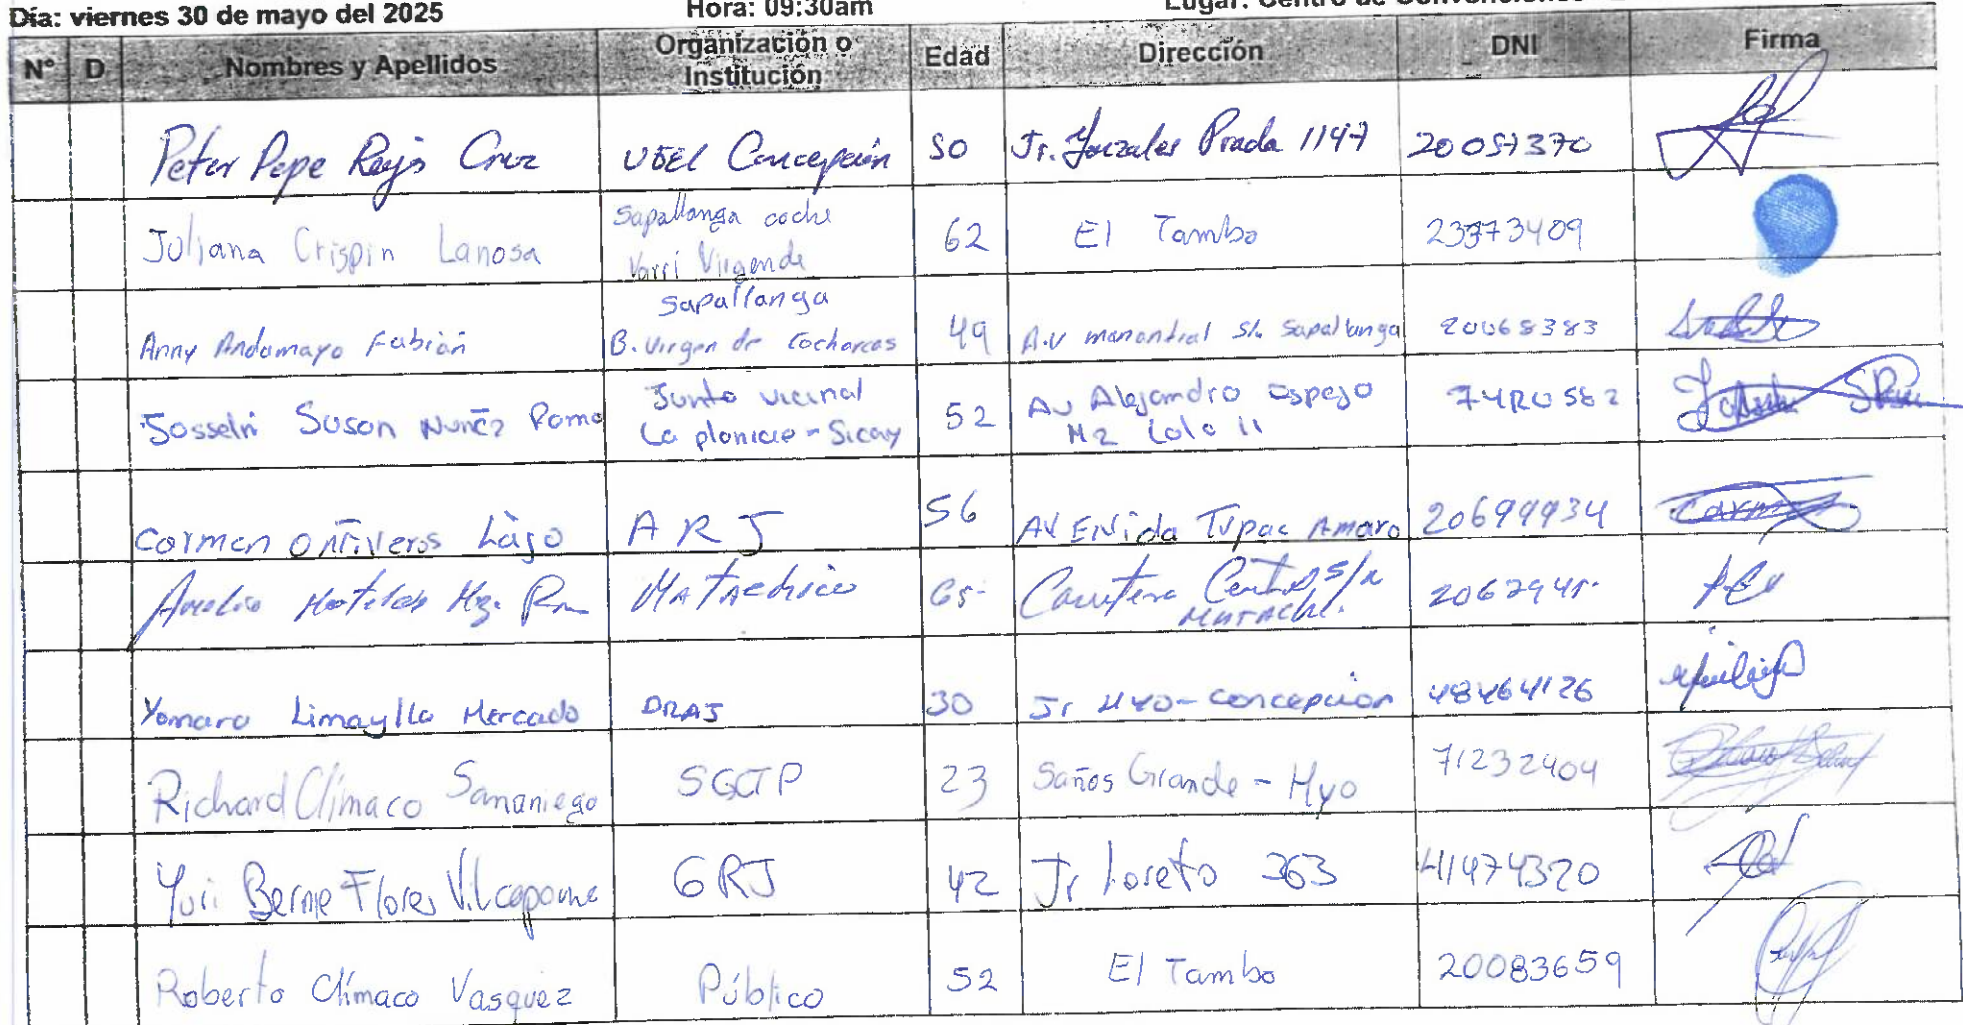 Día: viernes 30 de mayo del 2025 Hora: 09:30am Lugar: Centro de Convenciones
N° D Nombres y Apellidos Organización o Institución Edad Dirección DNI Firma
Peter Pepe Rojs Cruz UGEL Concepción 50 Jr. Gonzales Prada 1147 20057370
Juliana Crispin Lanosa Sapallanga coche Varri Virgende 62 El Tambo 23373409
Anny Andamayo Fabián Sapallanga B. Virgen de Cocharcas 49 A.V manantial S/n Sapallanga 20065383
Josselin Suson Nuñez Roma Junta vecinal La planicie - Sicay 52 Av Alejandro Espejo Mz Lote 11
Carmen Ontiveros Lago A R J 56 AVENida Tupac Amaro 20699934 Carm
Aurelio Matachico 65 Carretera Central S/n Matachi. 2062941
Yomara Limaylla Mercado DRAJ 30 Jr Hyo-concepcion 48464126
Richard Clímaco Samaniego SGCTP 23 Saños Grande - Hyo 71232404
Yuri Berne Flores Vilcapoma GRJ 42 Jr Loreto 363 41474320
Roberto Clímaco Vasquez Público 52 El Tambo 20083659